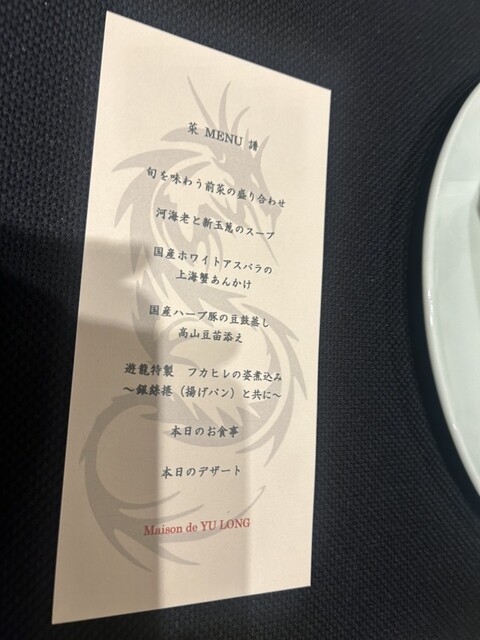 菜 MENU 譜
旬を味わう前菜の盛り合わせ
河海老と新玉葱のスープ
国産ホワイトアスパラの
上海蟹あんかけ
国産ハーブ豚の豆鼓蒸し
高山豆苗添え
遊龍特製　フカヒレの姿煮込み
～銀絲捲（揚げパン）と共に～
本日のお食事
本日のデザート
Maison de YU LONG